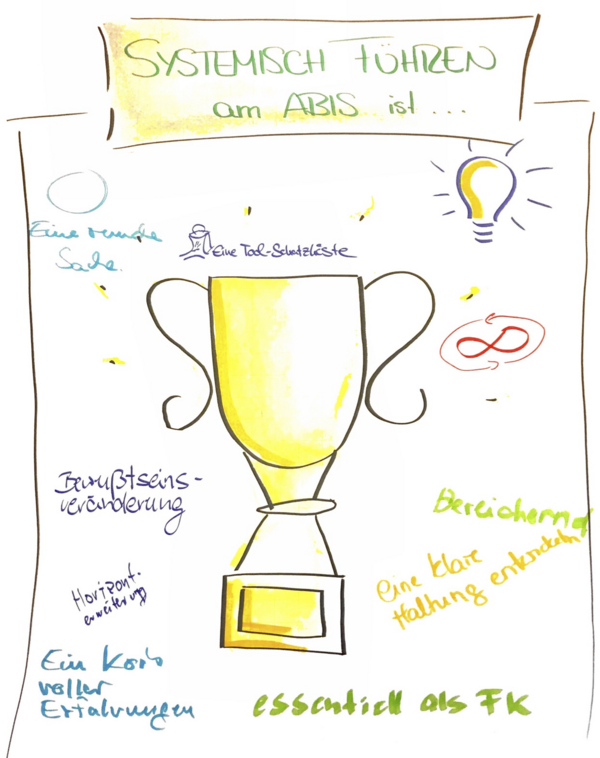 SYSTEMISCH FÜHREN
am ABIS ist ...
Eine runde
Sache.
Eine Tool-Schatzkiste
Bewußtseins-
veränderung
Bereichernd
eine klare
Haltung entwickeln
Horizont-
erweiterung
Ein Korb
voller
Erfahrungen
essentiell als FK